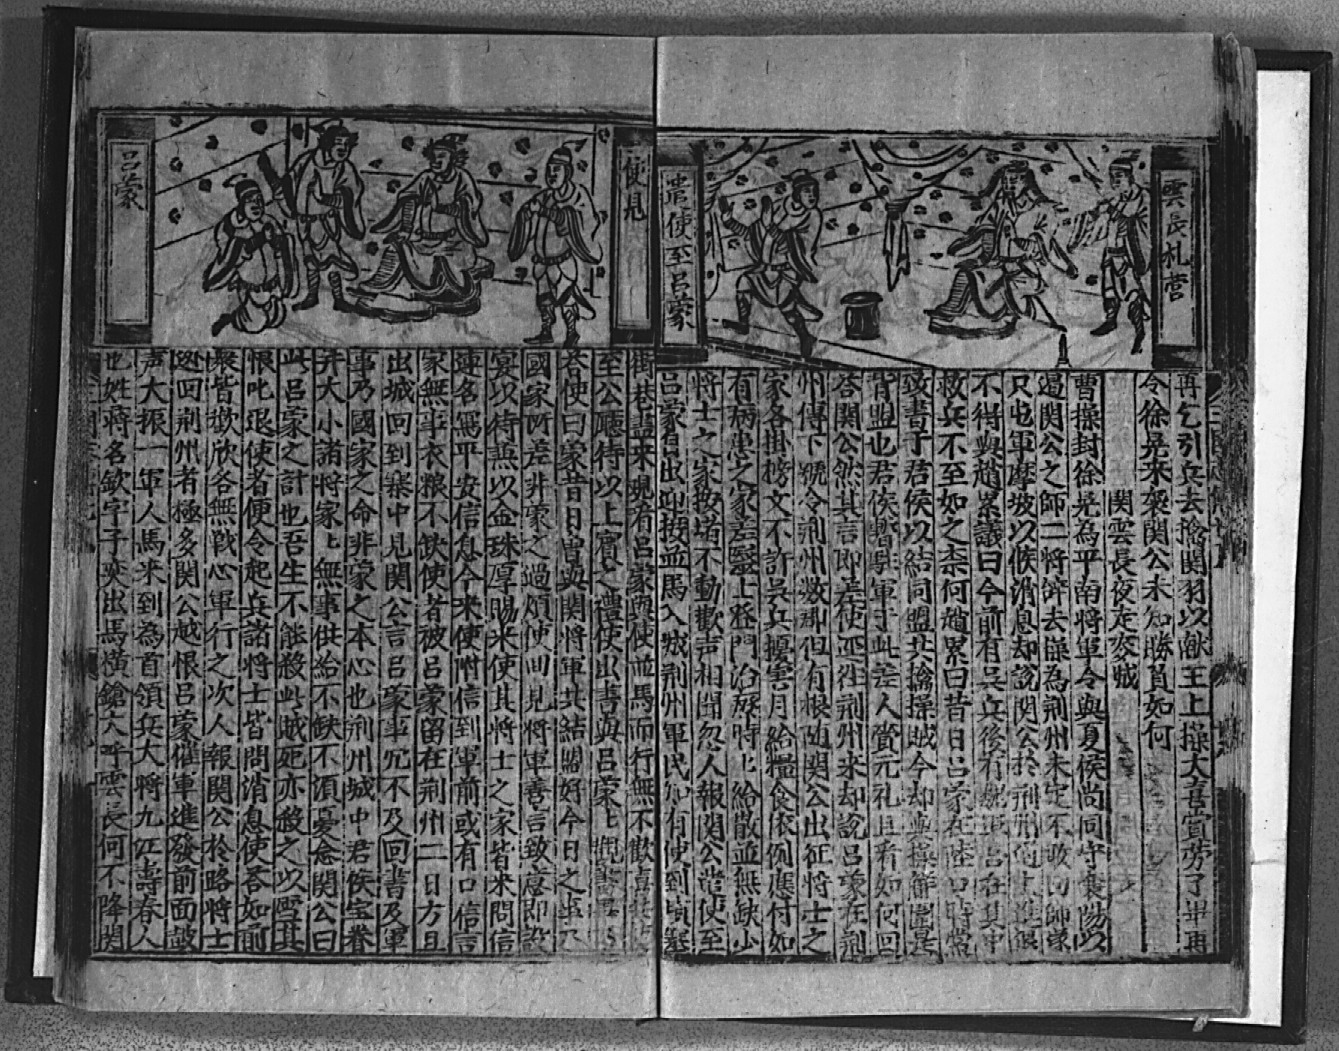 雲長札營
遣使至呂蒙
再乞引兵去擒關羽以献王上操大喜賞勞了畢再
令徐晃來襲関公未知勝負如何
関雲長夜走麥城
曹操封徐晃為平南將軍令與夏侯尚同守襄陽以
遏関公之師二將辞去操為荊州未定不敢回師遂
只屯軍摩坡以候消息却說関公於荊州
不得與趙累議曰今前有吳兵後有在其中
救兵不至如之柰何趙累曰昔日呂蒙在陸口時常
致書于君侯以結同盟共擒操賊今却與操
背盟也君侯暫駐軍于此差人賫元礼且看如何回
答関公然其言即差使逕往荊州来却說呂蒙在荊
州傳下號令荊州数郡但有根随関公出征將士之
家各掛榜文不許吳兵擾害月給糧食依例應付如
有病患之家差醫士登門治療時上給散並無缺少
將士之家按堵不動歡声相聞忽人報関公遣使至
呂蒙自出迎接並馬入城荊州軍民知有使到填塞
使見
呂蒙
街巷盡來現看呂蒙與使並馬而行無不歡喜
至公廳待以上賓之禮使出書與呂蒙上觀書畢
荅使曰蒙昔日曽與関將軍共結盟好今日之事乃
國家所差非蒙之過煩使回見將軍善言致意即設
宴以待並以金珠厚賜来使其將士之家皆来問信
連名寫平安信息令来使附信到軍前或有口信言
家無事衣粮不缺使者被呂蒙留在荊州二日方且
出城回到寨中見関公言呂蒙事冗不及回書及軍
事乃國家之命非蒙之本心也荊州城中君侯宝眷
并大小諸將家上無事供給不缺不湏憂念関公曰
此呂蒙之計也吾生不能殺此賊死亦殺之以雪其
恨叱退使者便令起兵諸將士皆問消息使荅如前
衆皆歡欣各無戰心軍行之次人報関公於路將士
迯回荊州者極多関公越恨呂蒙催軍進發前面鼓
声大振一軍人馬来到為首領兵大將九江壽春人
也姓蔣名欽字子奕出馬橫鎗大呼雲長何不降関